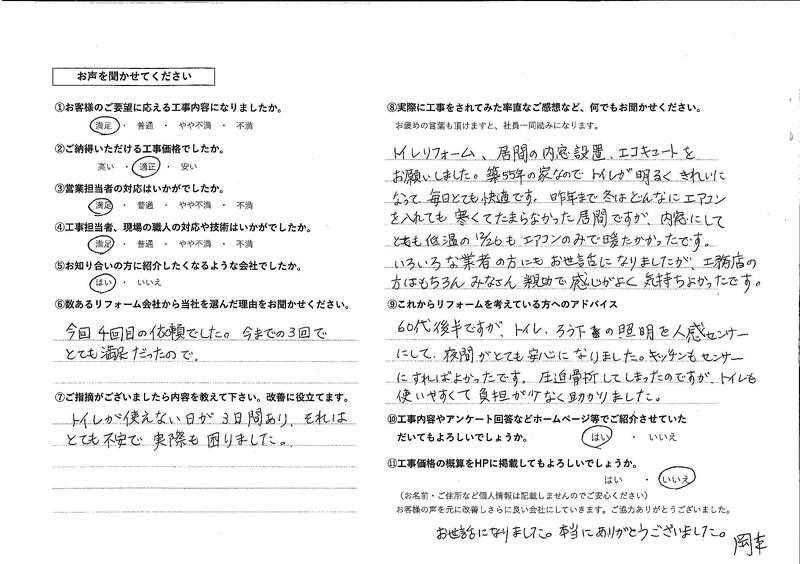 お声を聞かせてください
①お客様のご要望に応える工事内容になりましたか。
満足 ・ 普通 ・ やや不満 ・ 不満
②ご納得いただける工事価格でしたか。
高い ・ 適正 ・ 安い
③営業担当者の対応はいかがでしたか。
満足 ・ 普通 ・ やや不満 ・ 不満
④工事担当者、現場の職人の対応や技術はいかがでしたか。
満足 ・ 普通 ・ やや不満 ・ 不満
⑤お知り合いの方に紹介したくなるような会社でしたか。
はい ・ いいえ
⑥数あるリフォーム会社から当社を選んだ理由をお聞かせください。
今回4回目の依頼でした。今までの3回で
とても満足だったので。
⑦ご指摘がございましたら内容を教えて下さい。改善に役立てます。
トイレが使えない日が3日間あり、それは
とても不安で実際も困りました。
⑧実際に工事をされてみた率直なご感想など、何でもお聞かせください。
お褒めの言葉も頂けますと、社員一同励みになります。
トイレリフォーム、居間の内窓設置、エコキュートを
お願いしました。築55年の家なのでトイレが明るくきれいに
なって毎日とても快適です。昨年まで冬はどんなにエアコン
を入れても寒くてたまらなかった居間ですが、内窓にして
とても低温の12/26もエアコンのみで暖たかかったです。
いろいろな業者の方にもお世話になりましたが、工務店の
方はもちろんみなさん親切で感じがよく気持ちよかったです。
⑨これからリフォームを考えている方へのアドバイス
60代後半ですが、トイレ、ろう下の照明を人感センサー
にして、夜間がとても安心になりました。キッチンもセンサー
にすればよかったです。圧迫骨折してしまったのですが、トイレも
使いやすくて負担が少なく助かりました。
⑩工事内容やアンケート回答などホームページ等でご紹介させていた
だいてもよろしいでしょうか。 はい ・ いいえ
⑪工事価格の概算をHPに掲載してもよろしいでしょうか。
はい ・ いいえ
（お名前・ご住所など個人情報は記載しませんのでご安心ください）
お客様の声を元に改善しさらに良い会社にしていきます。ご協力ありがとうございました。
お世話になりました。本当にありがとうございました。
岡本